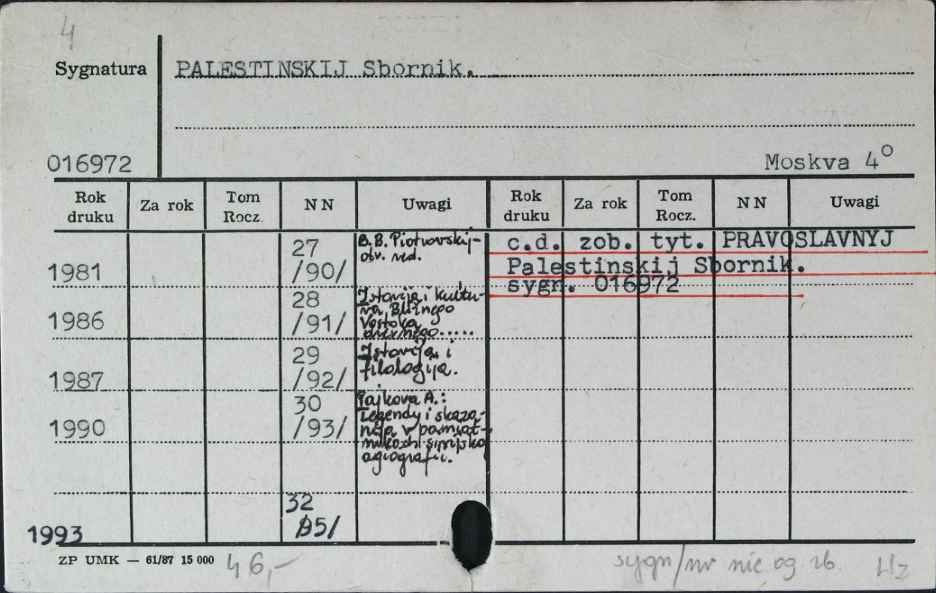 4
Sygnatura PALESTINSKIJ Sbornik.
016972 Moskva 4°
Rok druku Za rok Tom Rocz. NN Uwagi Rok druku Za rok Tom Rocz. NN Uwagi
1981 27 /90/ B.B. Piotrovskij- otv. red.
c.d. zob. tyt. PRAVOSLAVNYJ
Palestinskij Sbornik.
sygn. 016972
1986 28 /91/ Istorija i kultura Bližnego Vostoka drevnego.....
1987 29 /92/ Istorija i filologija.
1990 30 /93/ Pajkova A.: Legendy i skazanija v pamiatnikach sirijskoj agiografii.
1993 32 /95/
ZP UMK — 61/87 15 000 46,-
sygn/nr nie og